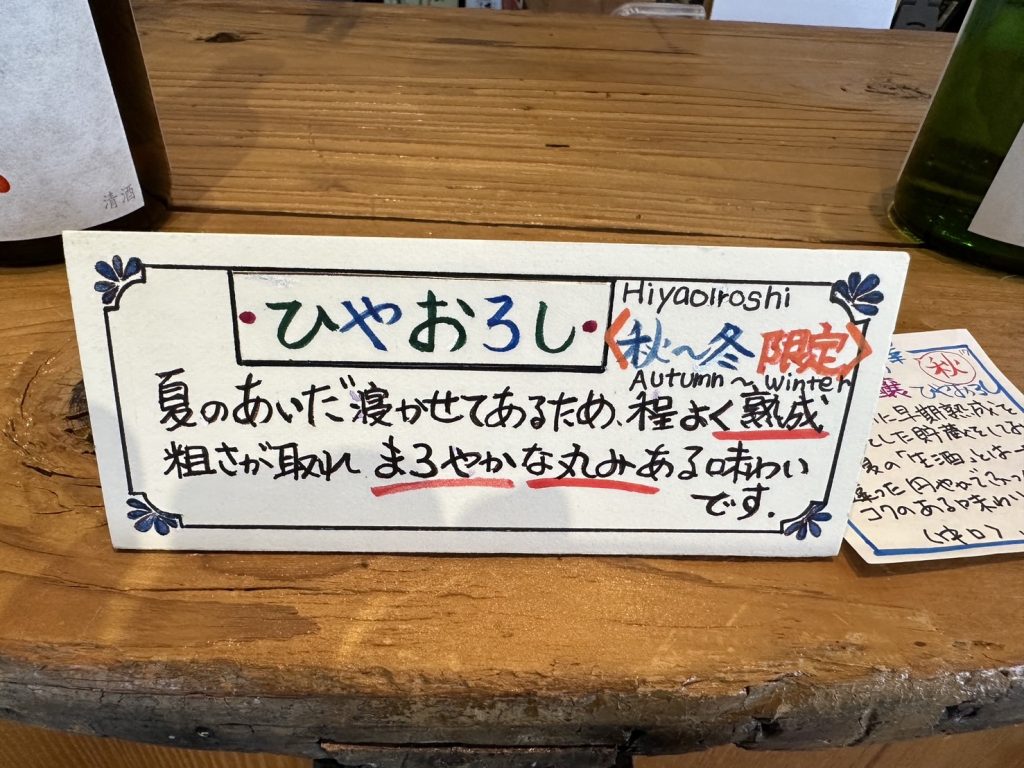 清酒
・ひやおろし・
Hiyaoroshi
〈秋〜冬 限定〉
Autumn〜winter
夏のあいだ寝かせてあるため、程よく熟成
粗さが取れ まろやかな丸みある味わい
です.
秋
ひやおろし
に早期熟成を
とした貯蔵をしてお
夏の「生酒」とは一
違った円やかでふっ
コクのある味わい